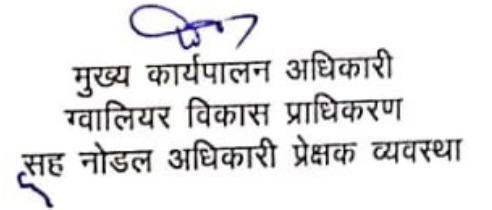 मुख्य कार्यपालन अधिकारी
ग्वालियर विकास प्राधिकरण
सह नोडल अधिकारी प्रेक्षक व्यवस्था